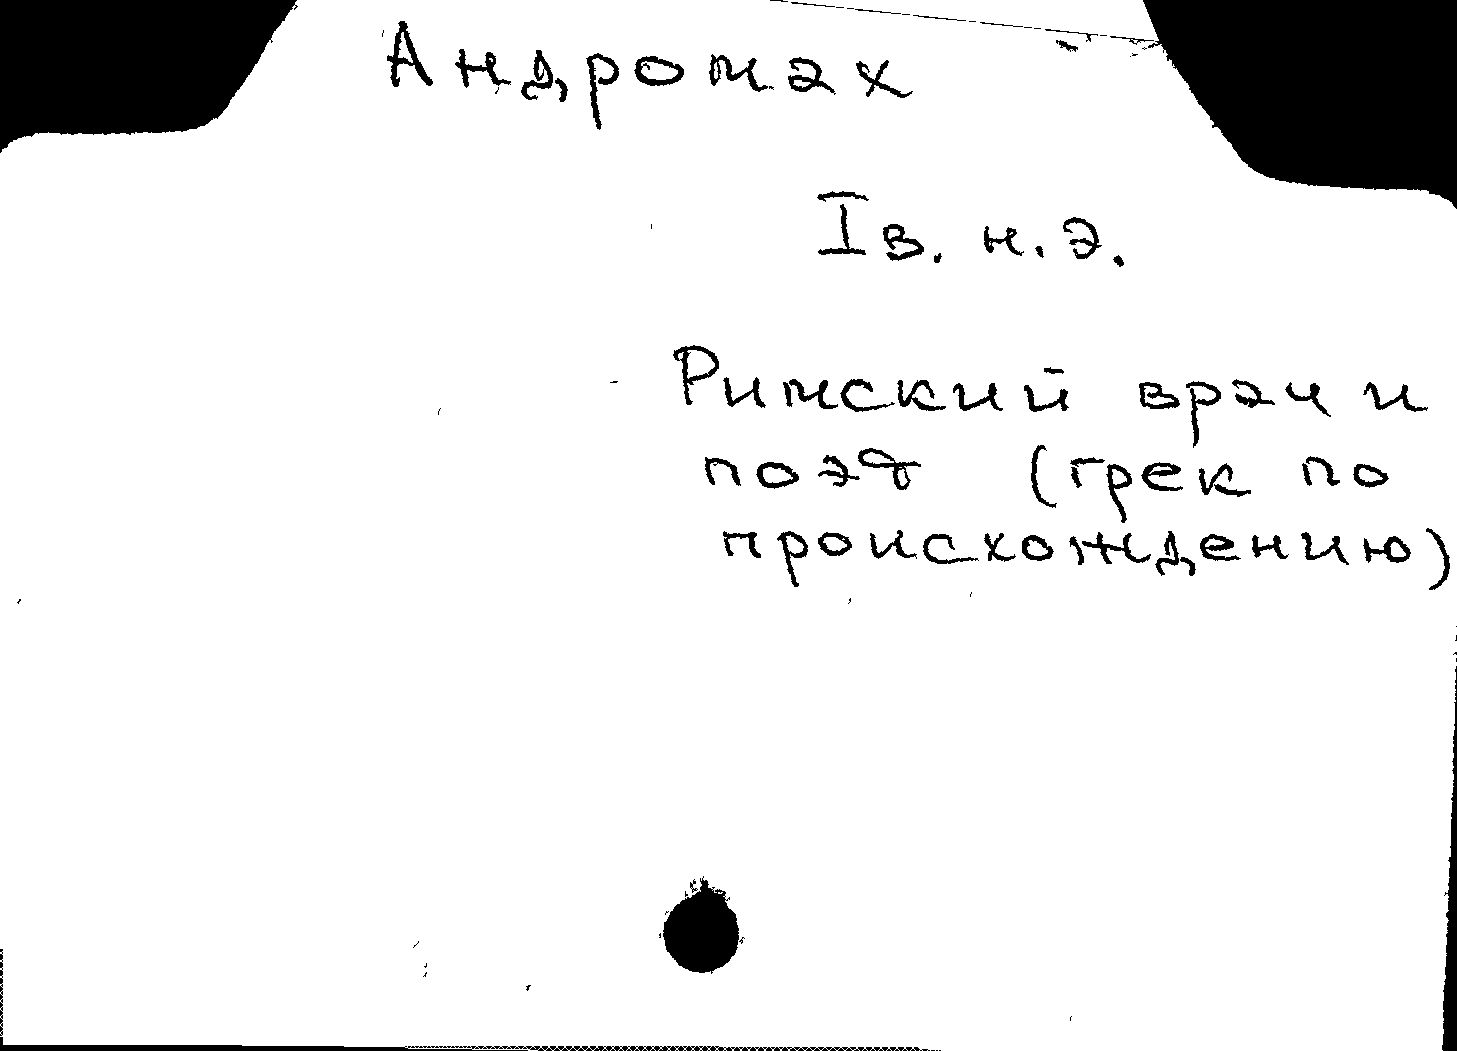 Андромах
I в. н.э.
Римский врач и
поэт (грек по
происхождению)